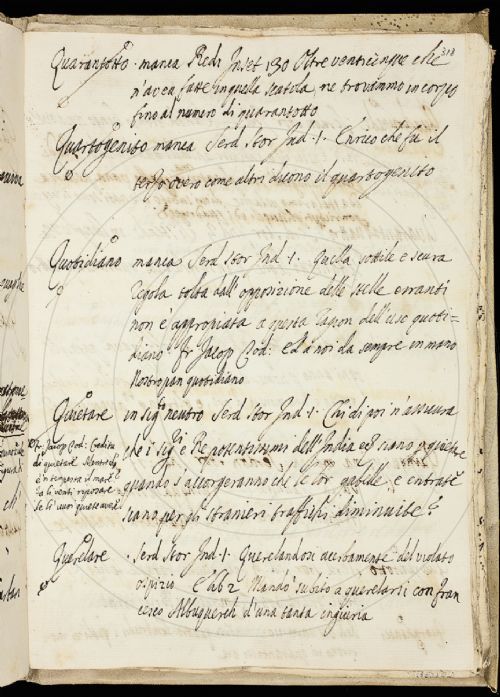 318
Quarantotto . manca Redi Inset 130 Oltre venticinque che
n'avea fatte in quella scatola ne trovammo in corpo
fino al numero di quarantotto
Quartogenito manca Serd Stor Ind. 1. Enrico che fu il
terzo overo come altri dicono il quartogenito
Quotidiano manca Serd Stor Ind. 1. Quella sottile e scura
regola tolta dall'opposizione delle stelle erranti
non è appropiata a questa ragion dell'uso quoti=
diano Fr Jacop Tod: Ed a noi da sempre in mano
Nostro pan quotidiano
Quietare in sigto neutro Serd Stor Ind. 1. Chi di voi n'assicura
che i Sigri Re potentissimi dell'India siano p quietare
quando s'accorgeranno che le lor gabelle, e entrate
siano per gli stranieri traffichi diminuite?
Fr Jacop Tod:
di quietare
e tempesta il mare
Querelare . Serd Stor Ind. 1. Querelandosi acerbamente del violato
ospizio E lib 2 Mandò subito a querelarsi con Fran
cesco Albuquerch d'una tanta ingiuria